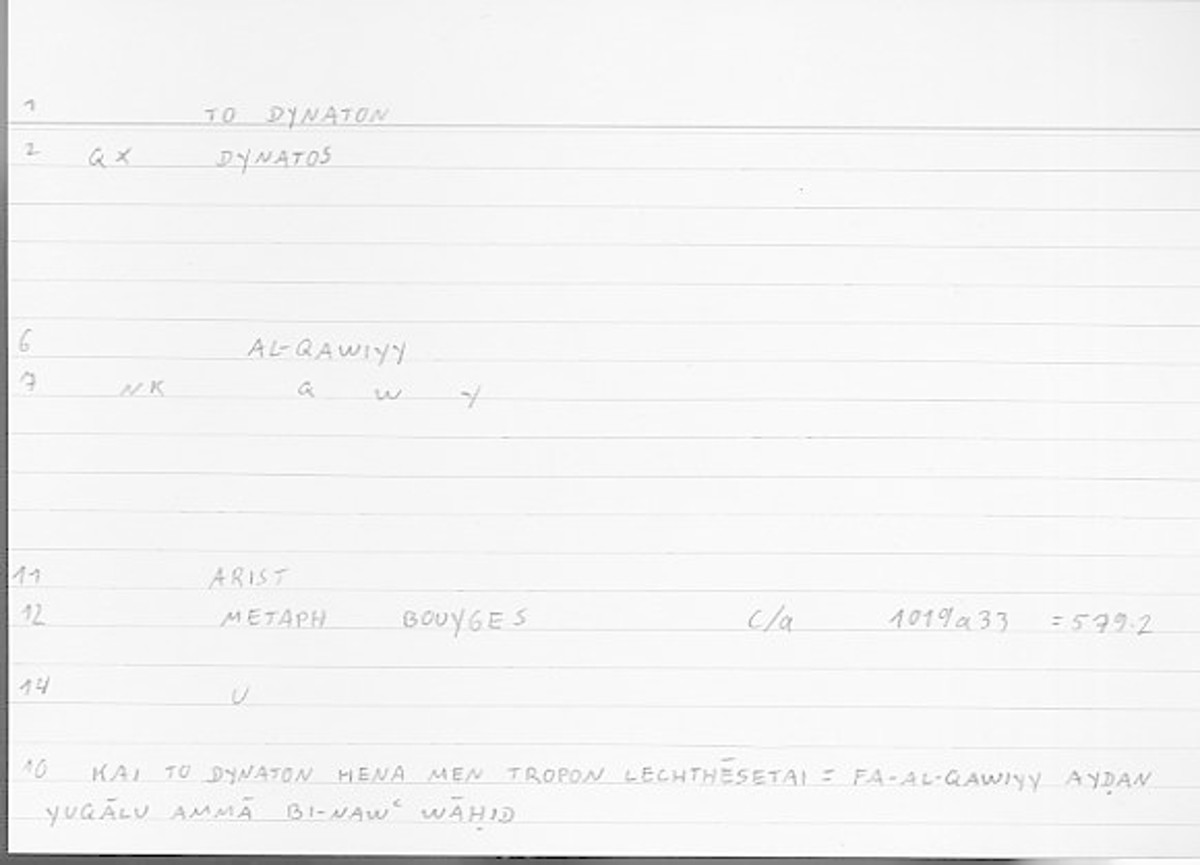 1 TO DYNATON
2 QX DYNATOS
6 AL-QAWIYY
7 NK Q W Y
11 ARIST
12 METAPH BOUYGES C/a 1019a33 =579.2
14 U
10 KAI TO DYNATON HENA MEN TROPON LECHTHĒSETAI = FA-AL-QAWIYY AYḌAN
YUQĀLU AMMĀ BI-NAWᶜ WĀḤID